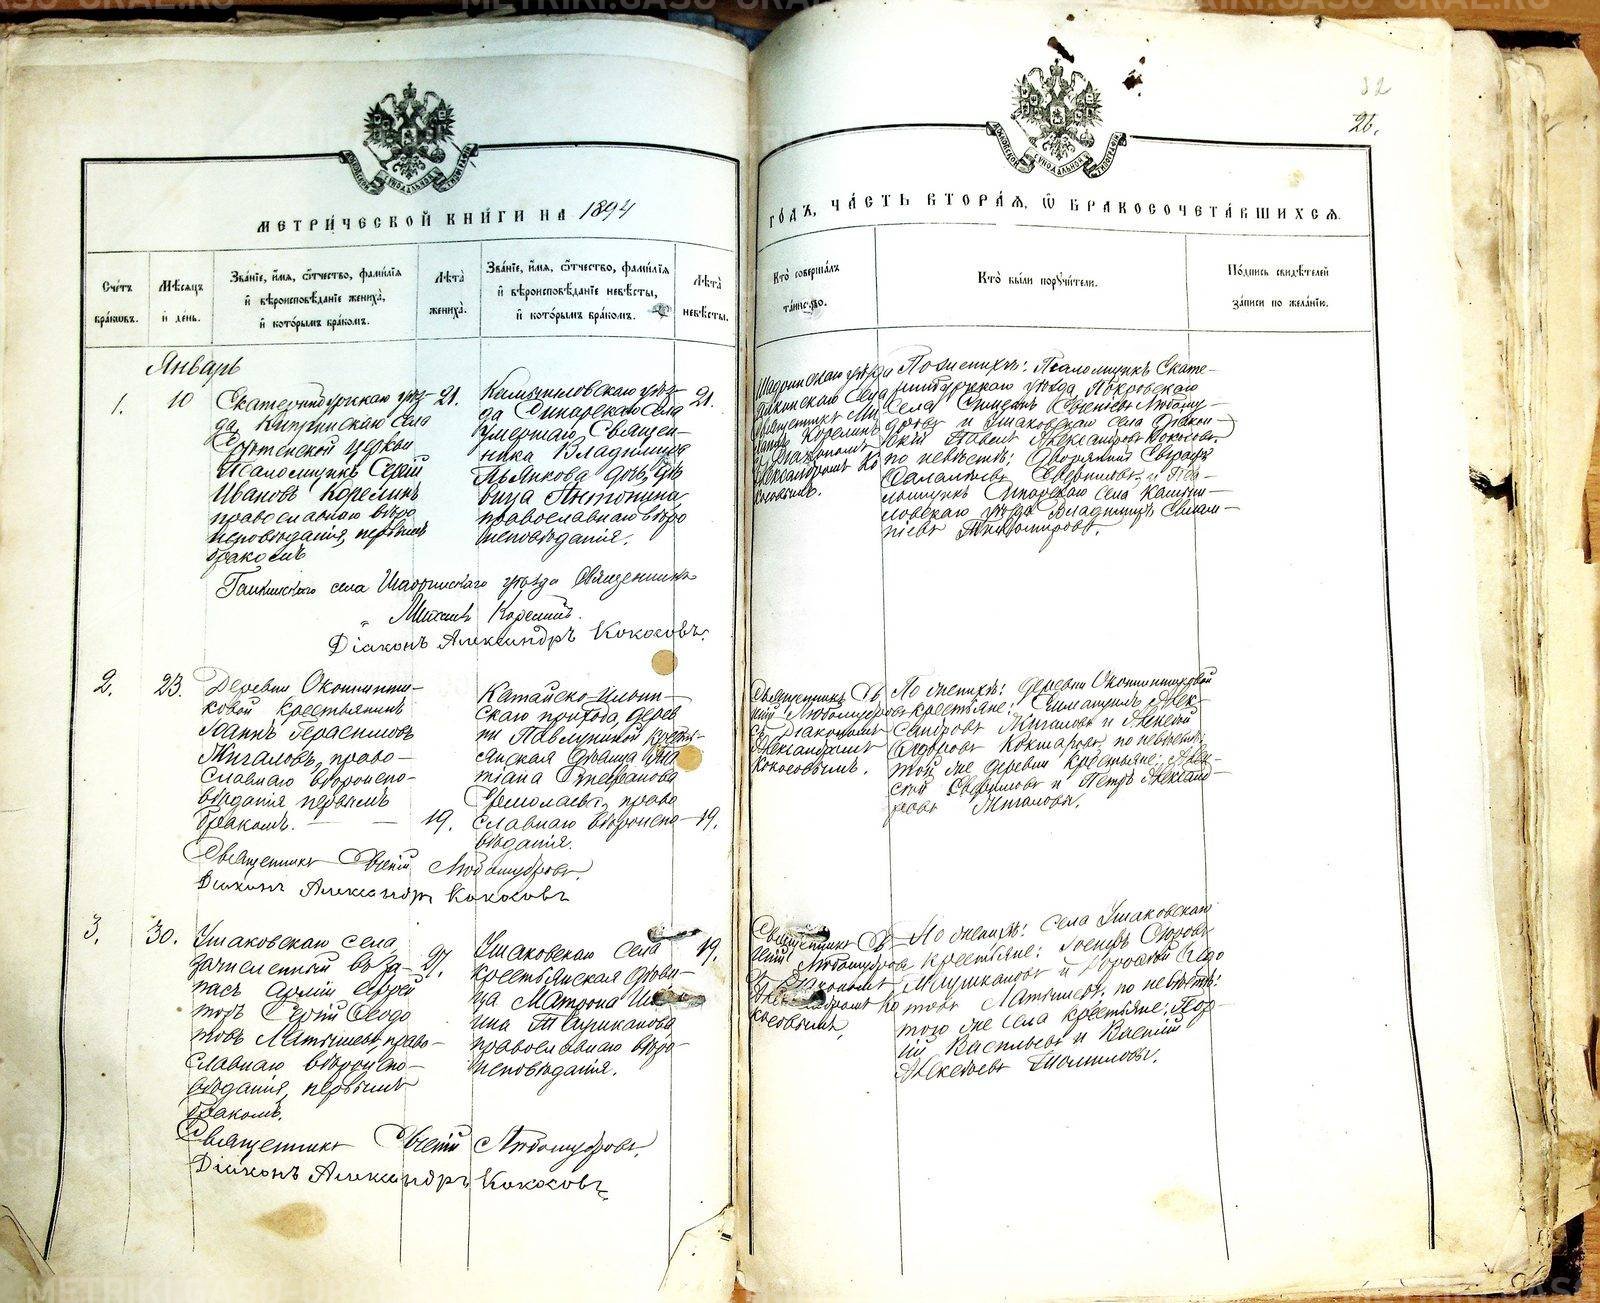 METRIKI.GASO-URAL.RU
32
26.
МОСКОВСКОЙ СѴНОДАЛЬНОЙ ТИПОГРАФІИ
МЕТРИ́ЧЕСКОЙ КНИ́ГИ НА 1894
ГО́ДЪ, ЧА́СТЬ ВТОРА́Я, Ѿ БРАКОСОЧЕТА́ВШИХСЯ.
Сче́тъ бра́ковъ.
Мѣ́сяцъ и҆ де́нь.
Зва́нїе, и҆́мя, ѻ҆́тчество, фамѵ́лїя
и҆ вѣроисповѣ́данїе жениха̀,
и҆ кото́рымъ бра́комъ.
Лѣ́та жениха̀.
Зва́нїе, и҆́мя, ѻ҆́тчество, фамѵ́лїя
и҆ вѣроисповѣ́данїе невѣ́сты,
и҆ кото́рымъ бра́комъ.
Лѣ́та невѣ́сты.
Кто̀ соверша́лъ
та́инство.
Кто̀ бы́ли порꙋчи́тели.
По́дпись свидѣ́телей
за́писи по жела́нїю.
Январь
1.
10
Екатеринбургскаго уѣз-
да,
села
Срѣтенской церкви
Псаломщикъ Сергій
Ивановъ Корелинъ
православнаго вѣро
исповѣданія, первымъ
бракомъ
21.
Камышловскаго уѣз-
да села
умершаго Священ-
ника Владиміра
дочь, дѣ
вица Антонина
православнаго вѣро
исповѣданія.
21.
Шадринскаго уѣзда
села
Священникъ Ми
хаилъ Корелинъ
съ Діакономъ
Александромъ Ко
косовымъ.
По женихѣ: Псаломщикъ Екате-
ринбургскаго уѣзда, Покровскаго
села Симеонъ Евгеніевъ Любому-
дровъ и Ушаковскаго села Діакон
Александровъ Кокосовъ,
по невѣстѣ: Дворянинъ
и Пса-
ломщикъ села Камыш-
ловскаго уѣзда Владиміръ
Тихомировъ.
села Шадринскаго уѣзда Священникъ
Михаилъ Корелинъ.
Діаконъ Александръ Кокосовъ.
2.
23.
Деревни
ковой крестьянинъ
Іоаннъ Герасимовъ
Жигаловъ, право-
славнаго вѣроиспо-
вѣданія первымъ
бракомъ.
19.
Катайско-Ильин-
скаго прихода, дерев
ни Павлуниной кресть-
янская дѣвица Та
тіана Стефанова
Ермолаева, право
славнаго вѣроиспо-
вѣданія.
19.
Священникъ Ев
геній Любомудровъ
съ Діакономъ
Александромъ
Кокосовымъ.
По женихѣ: деревни
крестьяне: Алек-
сандровъ Жигаловъ и Алексѣй
Ѳедоровъ Кокшаровъ, по невѣстѣ:
той же деревни крестьяне: Алек-
сѣй и Петръ Александ-
ровъ Жигаловы.
Священникъ Евгеній Любомудровъ.
Діаконъ Александръ Кокосовъ
3.
30.
Ушаковскаго села
зачисленный въ за-
пасъ арміи ефрей
торъ Сергій Ѳедо
товъ Латышевъ, право-
славнаго вѣроиспо-
вѣданія, первымъ
бракомъ.
27.
Ушаковскаго села
крестьянская дѣви-
ца Матрона
православнаго вѣро-
исповѣданія.
19.
Священникъ Ев
геній Любомудровъ
съ Діакономъ
Александромъ Ко
косовымъ.
По женихѣ: села Ушаковскаго
крестьяне:
и Ѳедо
товъ Латышевъ, по невѣстѣ:
того же села крестьяне: Геор-
гій Васильевъ и Василій
Алексѣевъ
Священникъ Евгеній Любомудровъ.
Діаконъ Александръ Кокосовъ
METRIKI.GASO-URAL.RU